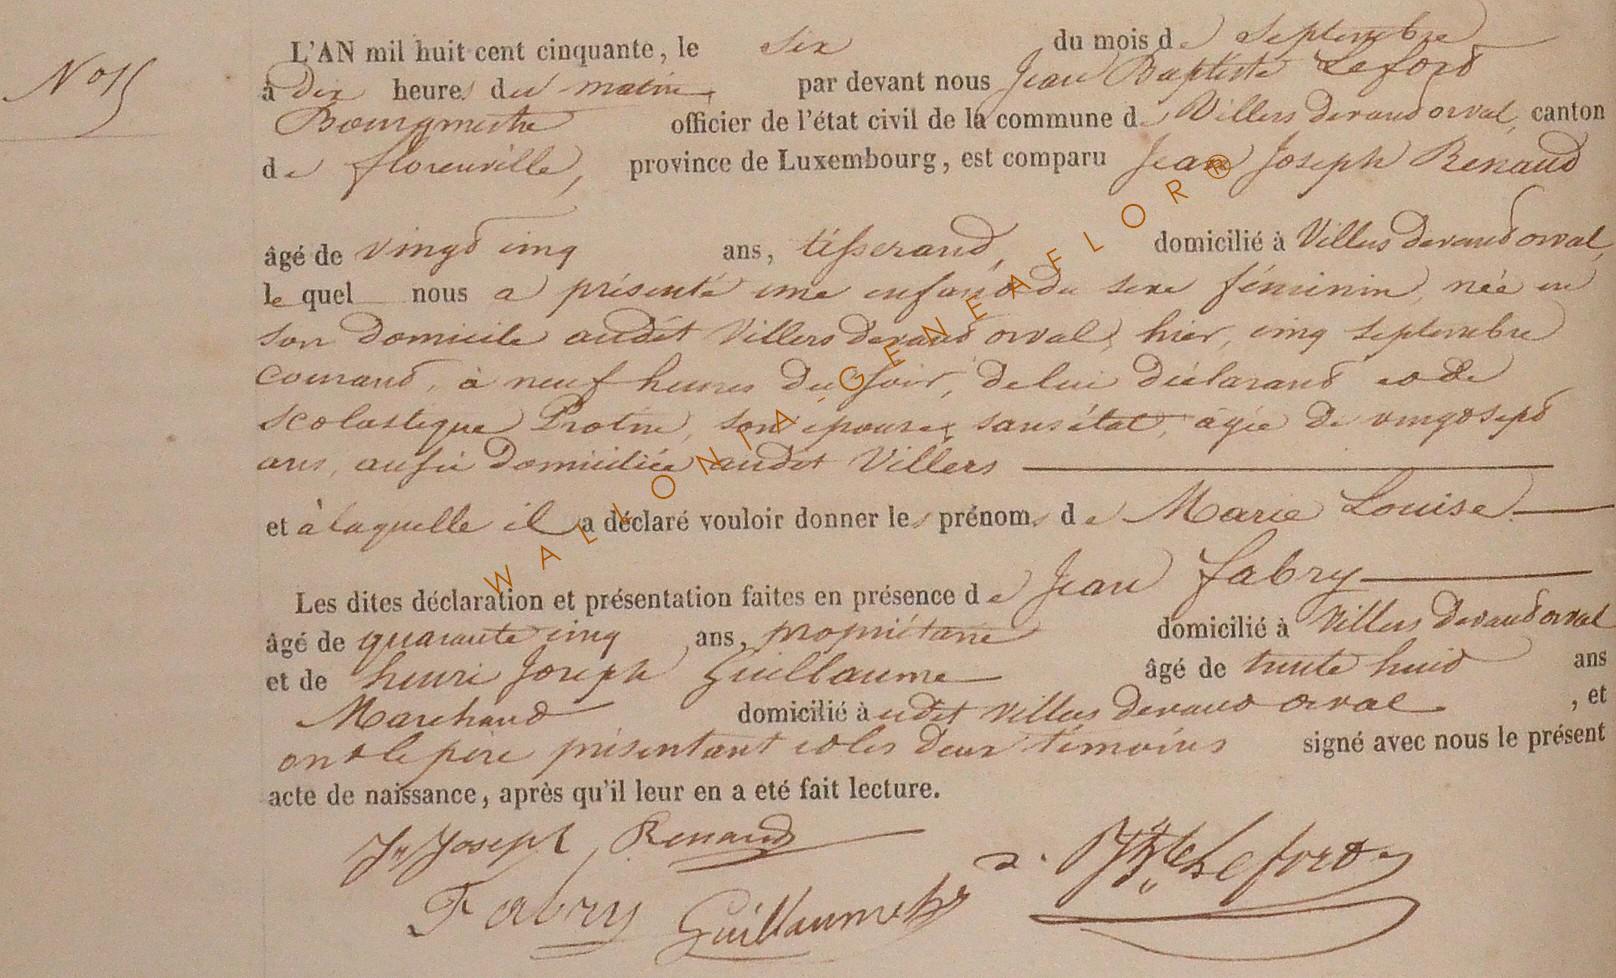 N° 15
L'AN mil huit cent cinquante, le six du mois de Septembre
à dix heures du matin, par devant nous Jean Baptiste Lefort
Bourgmestre officier de l'état civil de la commune de Villers devant orval, canton
de florenville, province de Luxembourg, est comparu Jean Joseph Renaud
âgé de vingt cinq ans, tisserand, domicilié à Villers devant orval,
le quel nous a présenté une enfant du sexe féminin, née en
son domicile audit Villers devant orval, hier, cinq septembre
courant, à neuf heures du soir, de lui déclarant et de
Scolastique Protin, son épouse, sans état, âgée de vingt sept
ans, aussi domiciliée audit Villers
et à laquelle il a déclaré vouloir donner les prénoms de Marie Louise
Les dites déclaration et présentation faites en présence de Jean fabry
âgé de quarante cinq ans, propriétaire domicilié à Villers devant orval
et de henri Joseph Guillaume âgé de trente huit ans
Marchand domicilié audit Villers devant orval, et
ont le père présentant et les deux témoins signé avec nous le présent
acte de naissance, après qu'il leur en a eté fait lecture.
Jn Joseph Renaud
Bte Lefort
Fabry Guillaume
WALLONIA-GENEAFLOR®